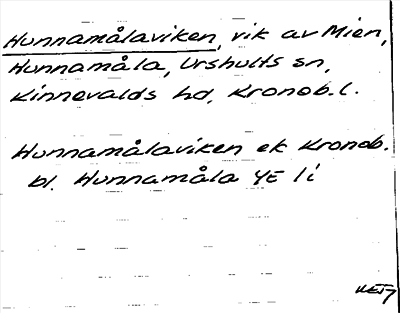 Hunnamålaviken, vik av Mien,
Hunnamåla, Urshults sn,
Kinnevalds hd, Kronob. l.
Hunnamålaviken ek Kronob.
bl. Hunnamåla 4E 1i